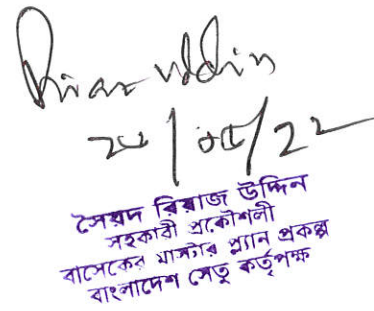 Riaz Uddin
২০/০৫/২২
সৈয়দ রিয়াজ উদ্দিন
সহকারী প্রকৌশলী
বাসেকের মাস্টার প্ল্যান প্রকল্প
বাংলাদেশ সেতু কর্তৃপক্ষ